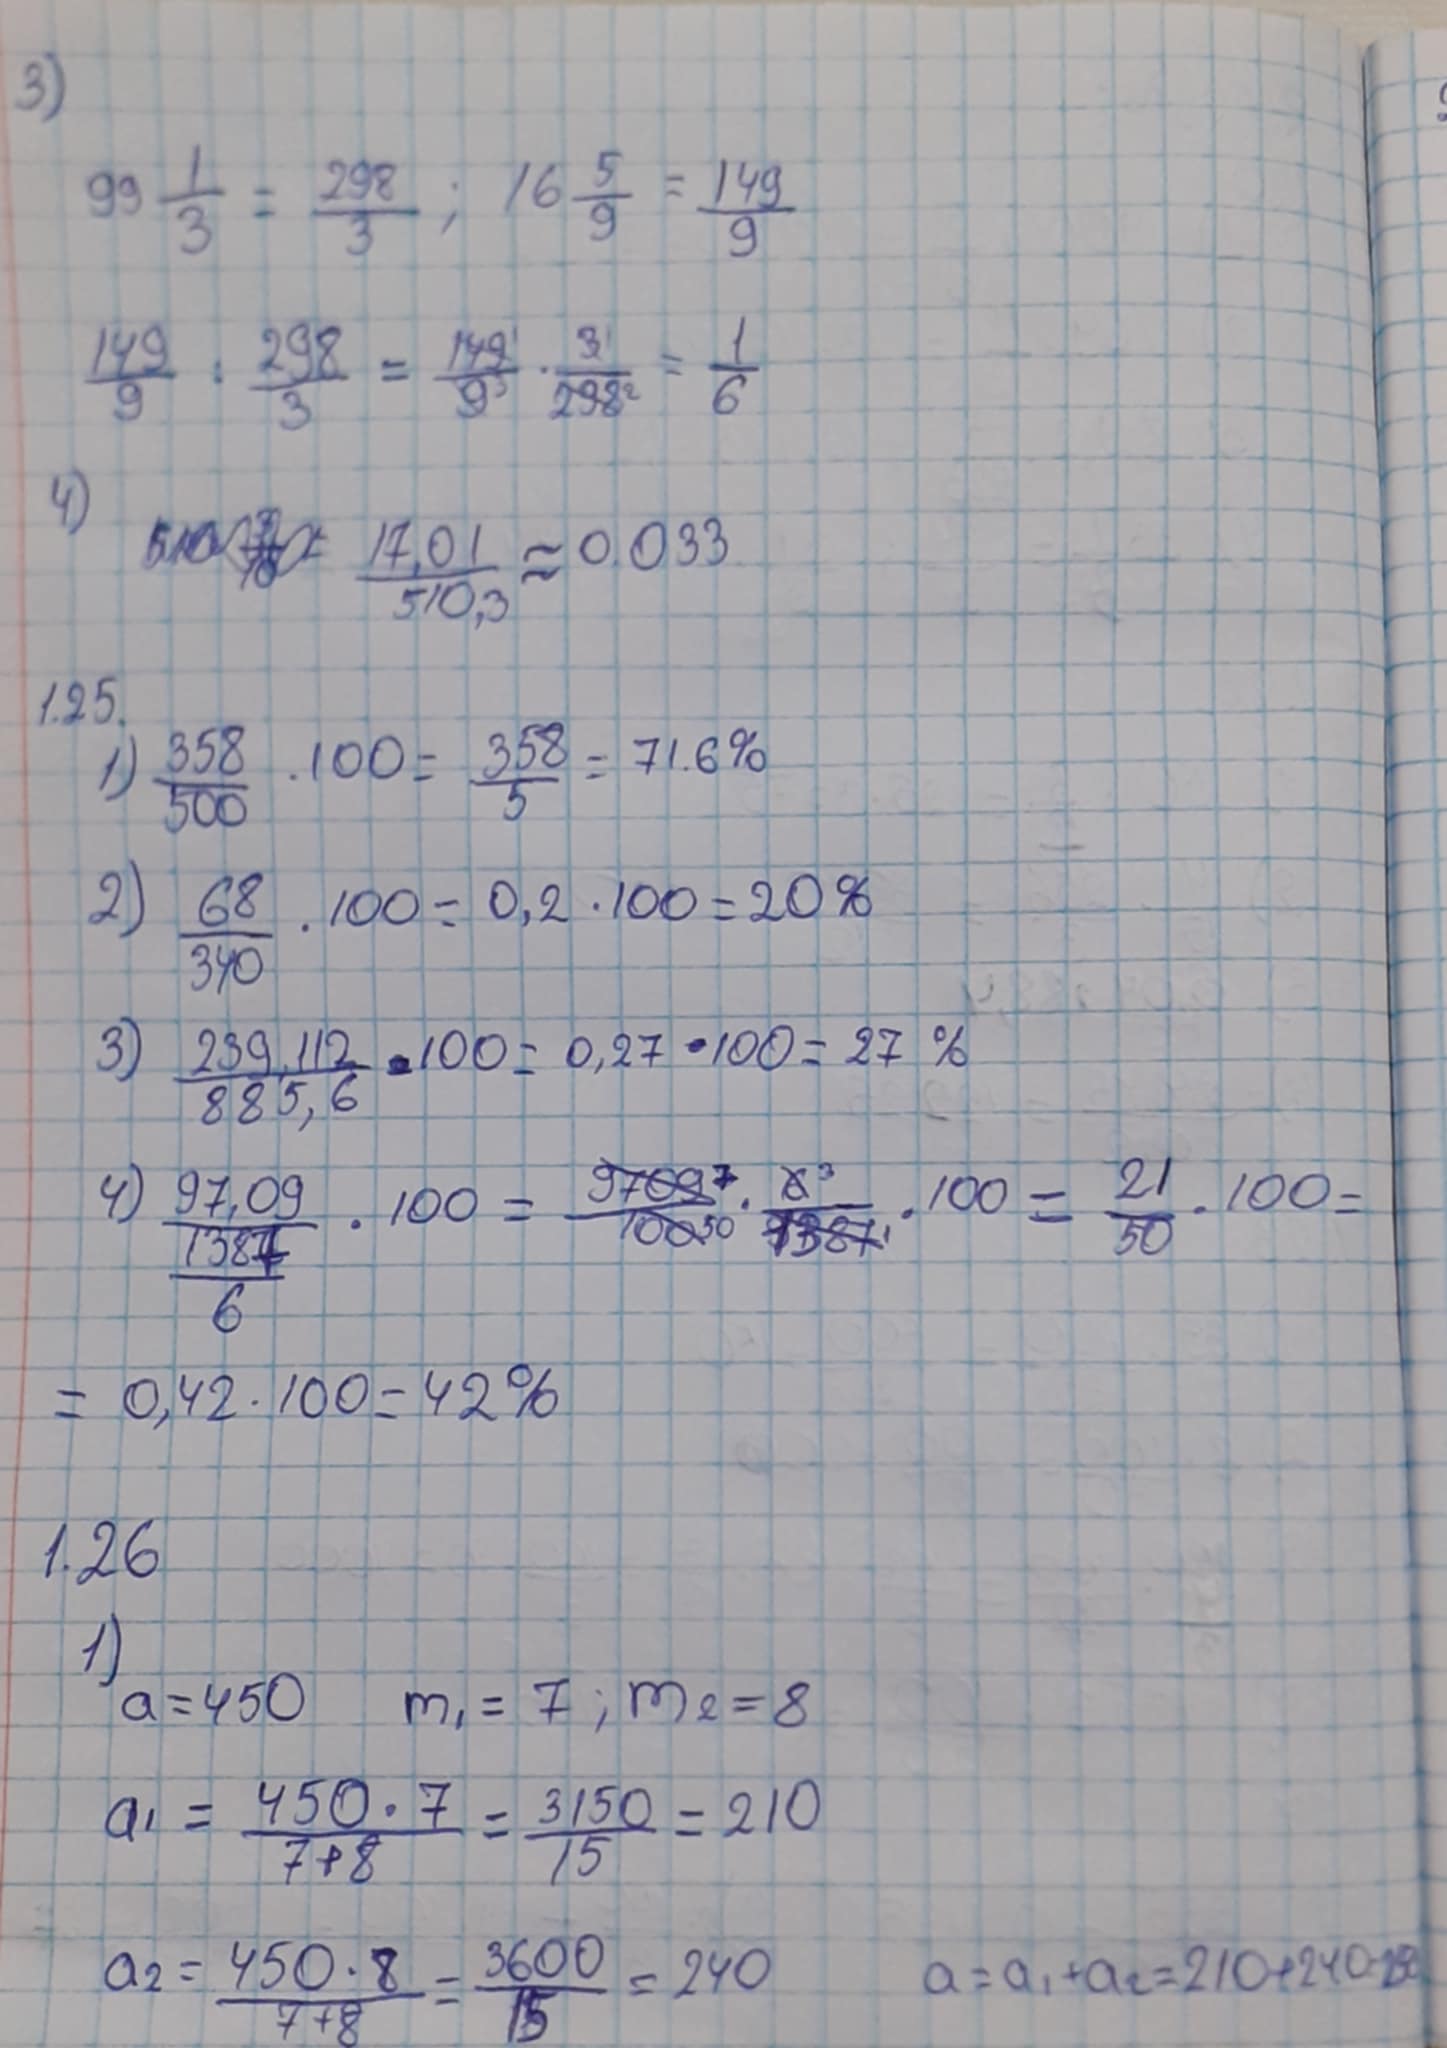 3)
99 1/3 = 298/3 ; 16 5/9 = 149/9
149/9 : 298/3 = 149¹/9³ · 3¹/298² = 1/6
4) 17,01/510,3 ≈ 0.033
1.25.
1) 358/500 · 100 = 358/5 = 71.6%
2) 68/340 · 100 = 0,2 · 100 = 20%
3) 239,112/885,6 · 100 = 0,27 · 100 = 27 %
4) 97,09/(1387/6) · 100 = 9709⁷/100⁵⁰ · 6³/1387¹ · 100 = 21/50 · 100 =
= 0,42 · 100 = 42%
1.26
1)
a = 450 m₁ = 7 ; m₂ = 8
a₁ = 450 · 7/7+8 = 3150/15 = 210
a₂ = 450 · 8/7+8 = 3600/15 = 240 a = a₁ + a₂ = 210 + 240